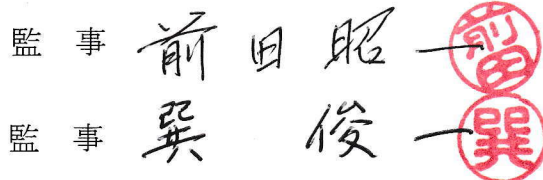 監事 前田昭一 前田
監事 巽 俊一 巽